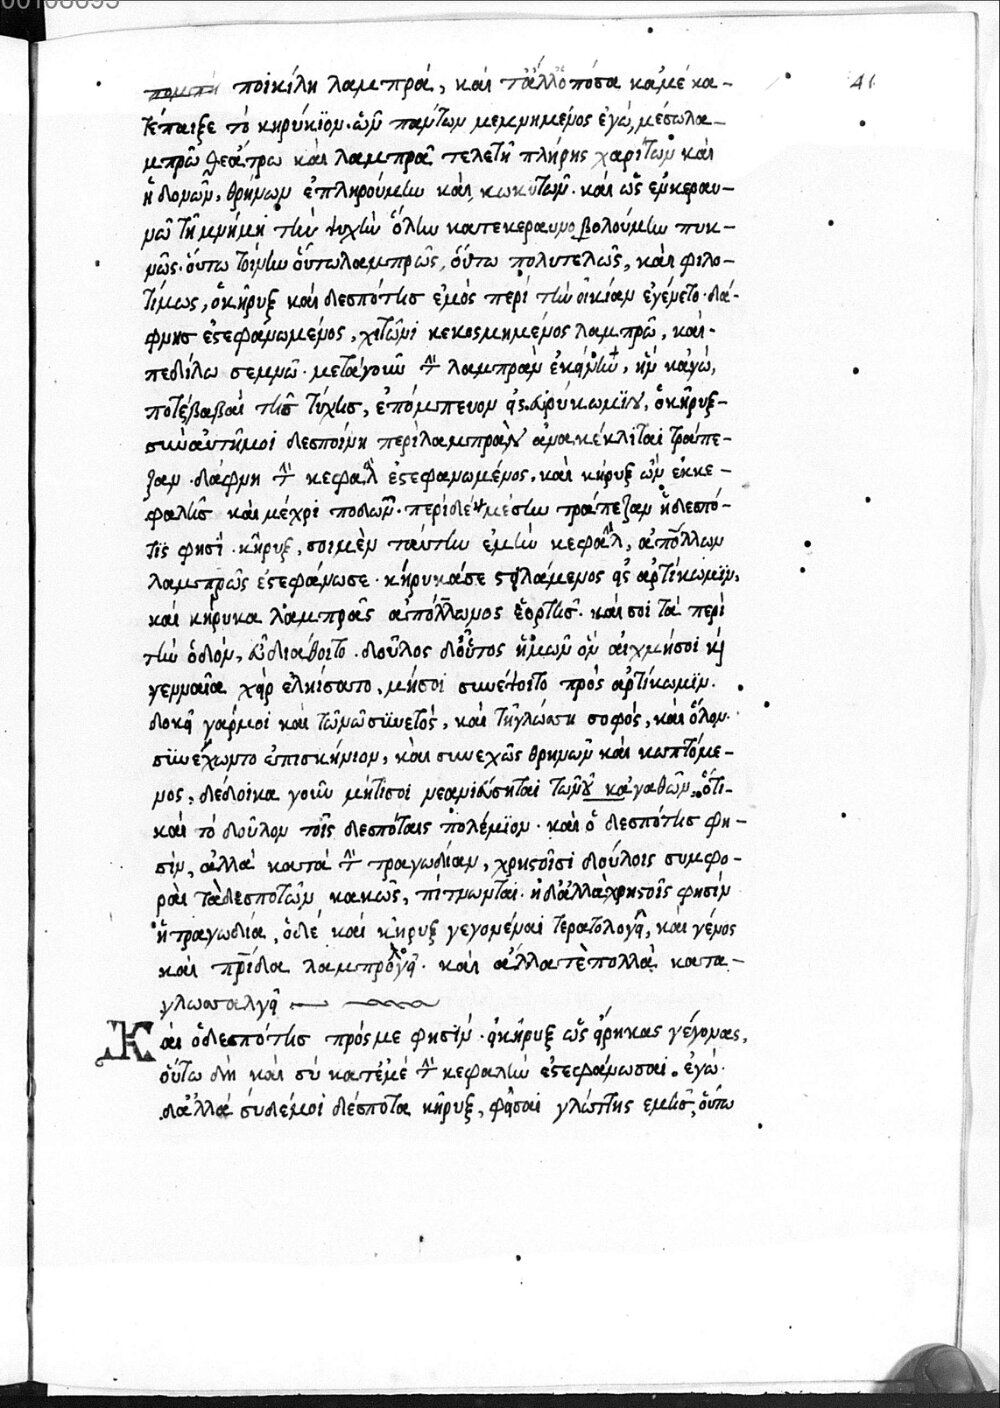 00108695
41
πομπή ποικίλη λαμπρά, καὶ τἄλλ' ὁπόσα καμὲ κα-
τέπαιξε τὸ κηρύκιον. ὧν πάντων μεμνημένος ἐγώ, μέσω λα-
μπρῶ θεάτρω καὶ λαμπρᾶ τελετῆ πλήρης χαρίτων καὶ
ἡδονῶν, θρήνων ἐπληρούμην καὶ κωκυτῶν. καὶ ὡς ἐν κεραυ-
νῶ τῆ μνήμη τὴν ψυχὴν ὅλην κατεκεραυνοβολούμην πυκ-
νῶς. οὕτω τοίνυν οὕτω λαμπρῶς, οὕτω πολυτελῶς, καὶ φιλο-
τίμως, ὁ κήρυξ καὶ δεσπότης ἐμὸς περὶ τὴν οἰκίαν ἐγένετο. δά-
φνης ἐστεφανωμένος, χιτῶνι κεκοσμημένος λαμπρῶ, καὶ
πεδίλω σεμνῶ. μετὰ γοῦν τὴν λαμπρὰν ἐκείνην, ἣν κἀγώ,
ποτὲ βαβαὶ τῆς τύχης, ἐπόμπευον εἰς εὐρύκωμιν, ὁ κήρυξ
σὺν αὐτῆ μοι δεσποίνη περὶ λαμπρὰν ἀνακέκλιται τράπε-
ζαν. δάφνη τὴν κεφαλὴν ἐστεφανωμένος, καὶ κήρυξ ὢν ἐκ κε-
φαλῆς καὶ μέχρι ποδῶν. περὶ δὲ μέσην τράπεζαν ἡ δεσπό-
τις φησί. κῆρυξ, σοὶ μὲν ταύτην ἐμὴν κεφαλήν, ἀπόλλων
λαμπρῶς ἐστεφάνωσε. κήρυκά σε στειλάμενος εἰς ἀρτύκωμιν,
καὶ κήρυκα λαμπρᾶς ἀπόλλωνος ἑορτῆς. καί σοι τὰ περὶ
τὴν ὁδόν, εὖ διάθοιτο. δοῦλος δ' οὗτος ἡμῶν ὃν αἰχμή σοι καὶ
γενναία χεὶρ ἐληίσατο, μή σοι συνέψοιτο πρὸς ἀρτύκωμιν.
δοκεῖ γάρ μοι καὶ τὸν νοῦν συνετός, καὶ τὴν γλῶσσαν σοφός, καὶ ὅλον
συνέχων τὸ ἐπισκήνιον, καὶ συνεχῶς θρηνῶν καὶ κοπτόμε-
νος, δέδοικα γοῦν μήτι σοι νεανιεύσηται τῶν οὐκ ἀγαθῶν, ὅτι
καὶ τὸ δοῦλον τοῖς δεσπόταις πολέμιον. καὶ ὁ δεσπότης φη-
σίν, ἀλλὰ κατὰ τὴν τραγωδίαν, χρηστοῖσι δούλοις συμφο-
ραὶ τὰ δεσποτῶν κακῶς, πίτνωνται. εἰ δ' ἀλλὰ χρηστοῖς φησὶν
ἡ τραγωδία, ὁ δὲ καὶ κῆρυξ γεγονέναι τερατολογεῖ, καὶ γένος
καὶ πατρίδα λαμπρολογεῖ. καὶ ἄλλα τὲ πολλὰ κατα-
γλωσσαλγεῖ
Καὶ ὁ δεσπότης πρός με φησίν. εἰ κῆρυξ ὡς εἴρηκας γέγονας,
οὕτω δὴ καὶ σὺ κατ' ἐμὲ τὴν κεφαλὴν ἐστεφάνωσαι. ἐγὼ
δ' ἀλλὰ σύ δέ μοι δέσποτα κῆρυξ, φεῖσαι γλώττης ἐμῆς, οὕτω